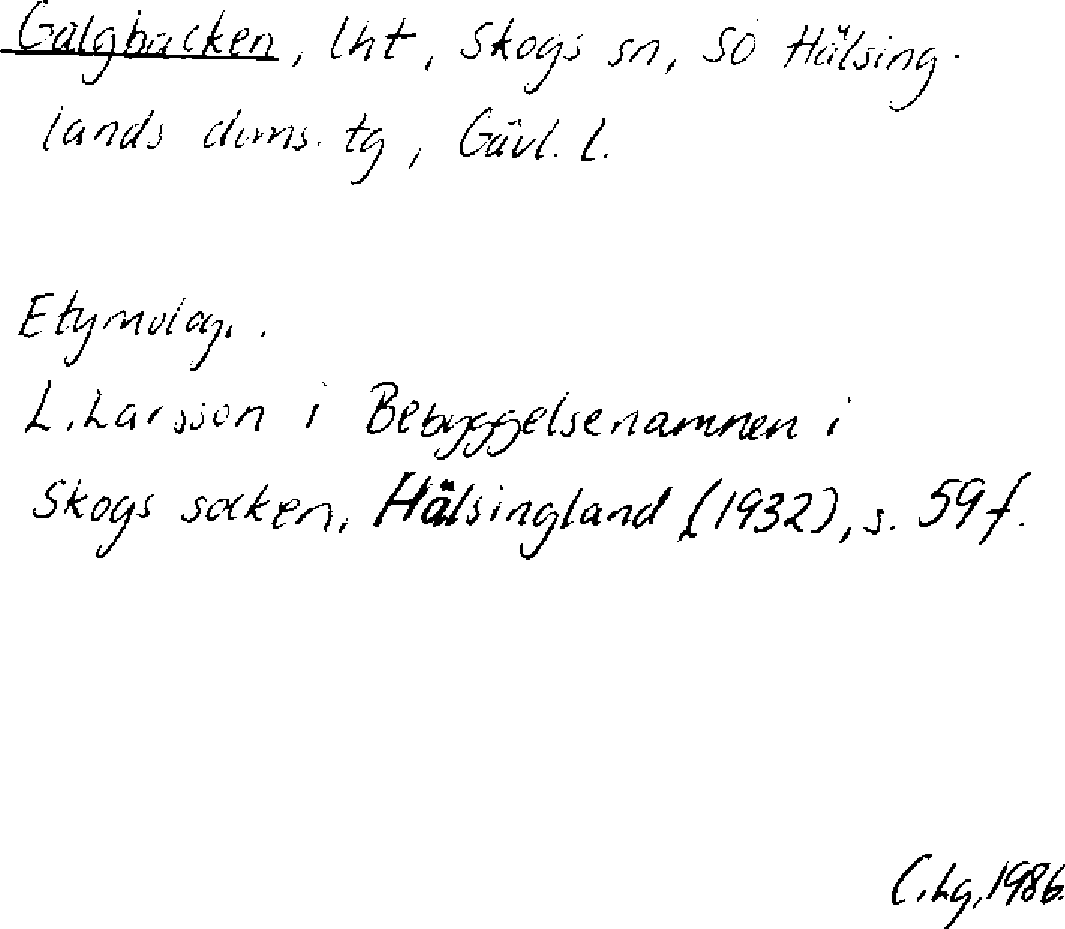 Galgbacken, lht, Skogs sn, SÖ Hälsing-
lands doms. tg, Gävl. l.
Etymologi.
L. Larsson i Bebyggelsenamnen i
Skogs socken, Hälsingland (1932), s. 59 f.
C. Lg, 1986.